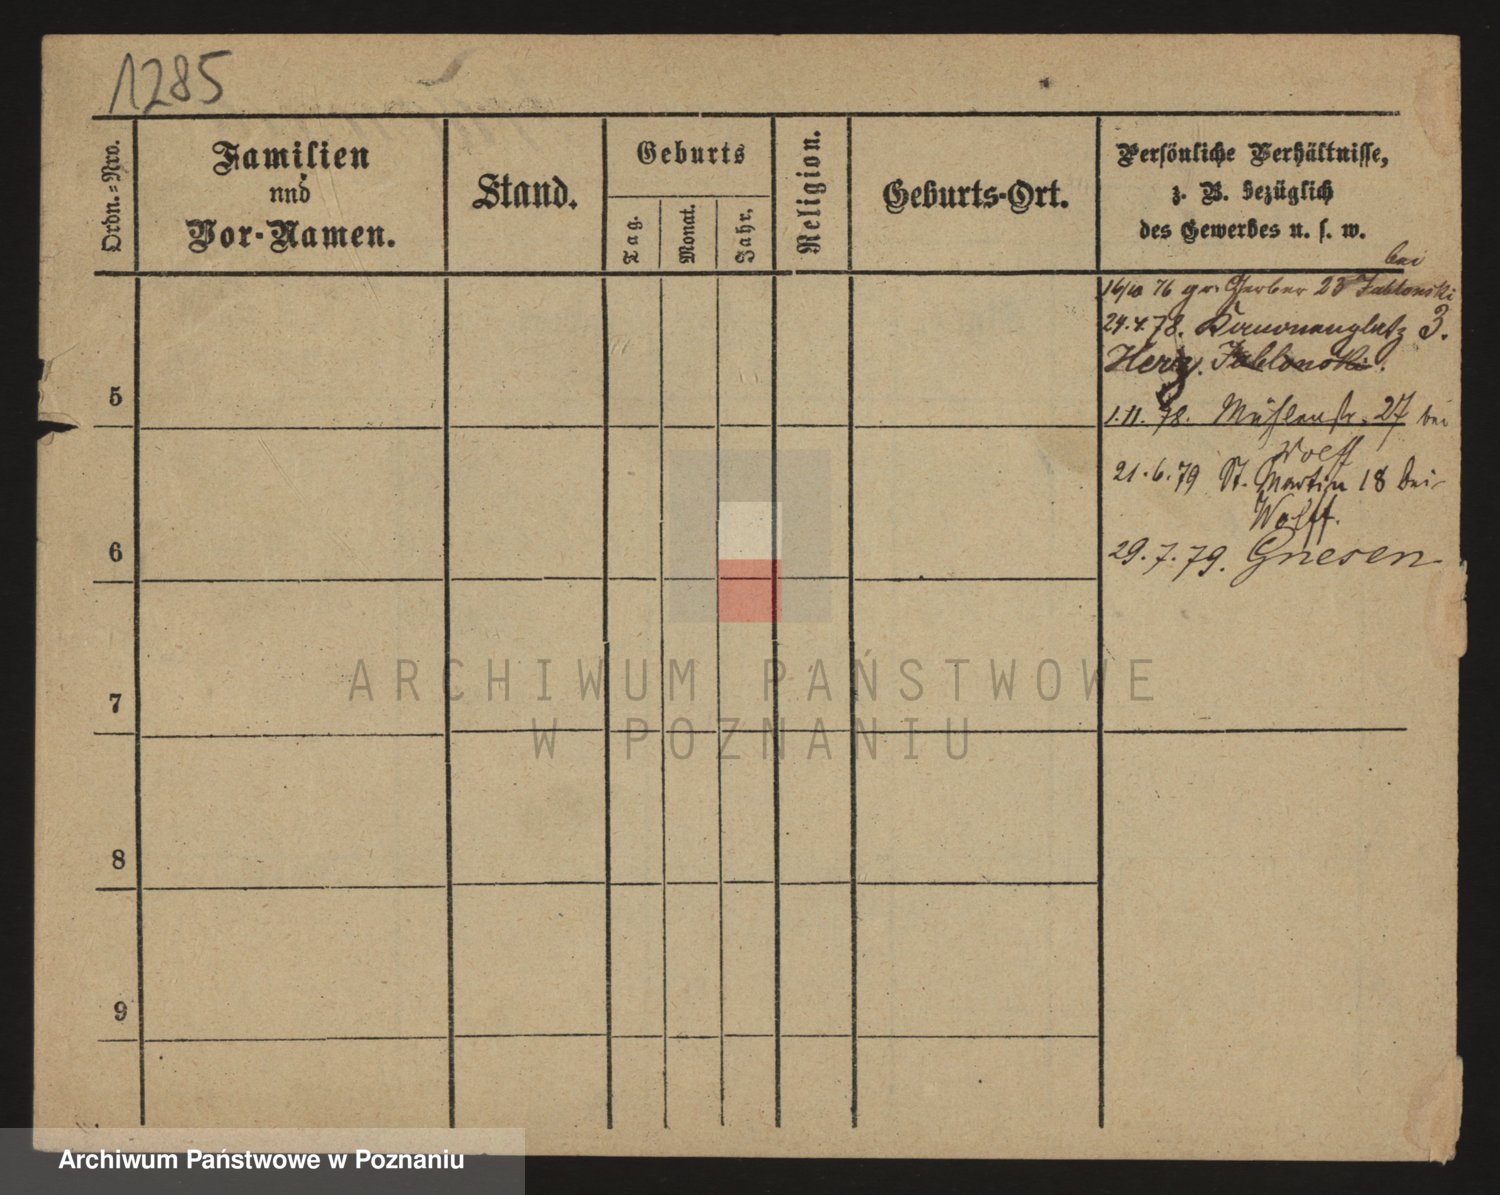 1285
Ordn.=Nro.
Familien
nnd
Vor-Namen.
Stand.
Geburts
Tag.
Monat.
Jahr,
Religion.
Geburts-Ort.
Persönliche Verhältnisse,
z. B. bezüglich
des Gewerbes u. s. w.
bei
16/10 76 gr. Gerber 23 Jablonski
24.4.78. Kanonenplatz 3.
Herz. Jablonski.
5
1.11.78. Mühlenstr. 27 bei
Wolff
21.6.79 St. Martin 18 bei
Wolff.
6
29.7.79. Gnesen
7
8
9
ARCHIWUM PAŃSTWOWE
W POZNANIU
Archiwum Państwowe w Poznaniu